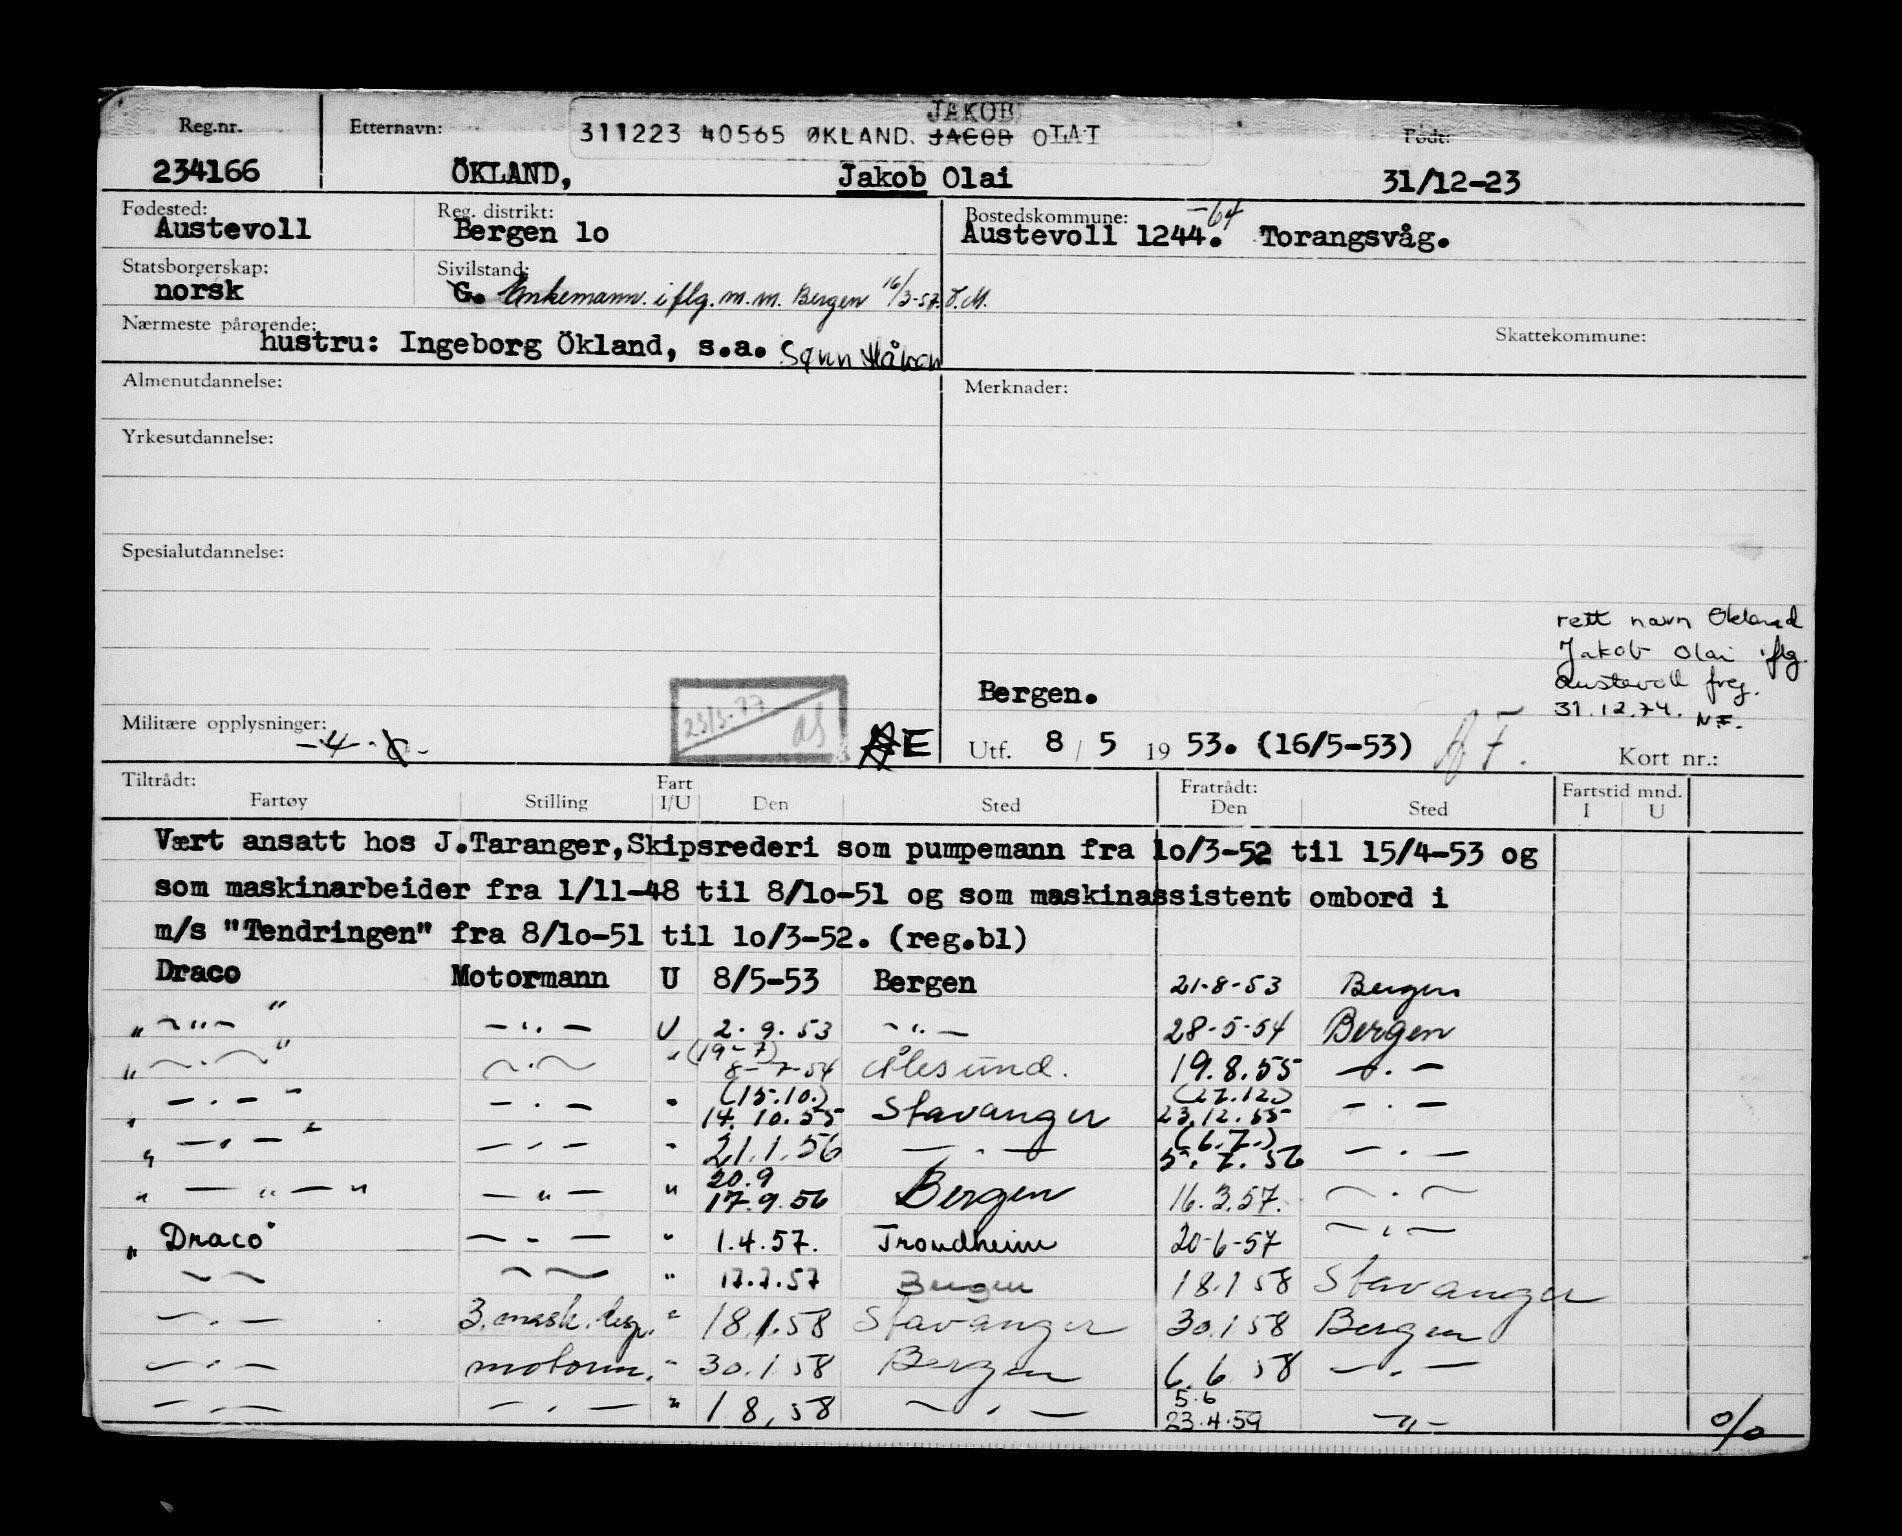 JAKOB
Reg.nr. Etternavn: 311223 40565 ØKLAND. JACOB OLAI Født:
234166 ÖKLAND, Jakob Olai 31/12-23
Fødested: Reg. distrikt: Bostedskommune: -64
Austevoll Bergen lo Austevoll 1244. Torangsvåg.
Statsborgerskap: Sivilstand:
norsk G. Enkemann. iflg. m.m. Bergen 16/3-57. J.M.
Nærmeste pårørende: Skattekommune:
hustru: Ingeborg Ökland, s.a. Sønn Håkon
Almenutdannelse: Merknader:
Yrkesutdannelse:
Spesialutdannelse:
rett navn Økland
Jakob Olai iflg.
Austevoll freg.
31.12.74. NF.
Bergen.
23/3-77
Militære opplysninger: E Utf. 8 / 5 19 53. (16/5-53) A.F. Kort nr.:
Tiltrådt: Fart Fratrådt: Fartstid mnd.
Fartøy Stilling I/U Den Sted Den Sted I U
Vært ansatt hos J.Taranger,Skipsrederi som pumpemann fra lo/3-52 til 15/4-53 og
som maskinarbeider fra 1/11-48 til 8/lo-51 og som maskinassistent ombord i
m/s "Tendringen" fra 8/lo-51 til lo/3-52. (reg.bl)
Draco Motormann U 8/5-53 Bergen 21-8-53 Bergen
" -"- " -"- U 2.9.53 -"- 28-5-54 Bergen
(19-7)
" -"- " -"- " 8-7-54 Ålesund. 19.8.55 -"-
(15.10.) (27.12)
" -"- " -"- " 14.10.55 Stavanger 23.12.55 -"-
(6.7.)
" -"- " -"- " 21.1.56 -"- 5.7.56 -"-
20.9
" -"- " -"- " 17.9.56 Bergen 16.3.57. -"-
" Draco" -"- " 1.4.57. Trondheim 20-6-57 -"-
-"- -"- " 17.7.57 Bergen 18.1 58 Stavanger
-"- 3. mask. " 18.1.58 Stavanger 30.1 58 Bergen
-"- motorm. " 30.1.58 Bergen 6.6 58 -"-
5.6
-"- -"- " 1 8.58 -"- 23.4.59 -"- o/o